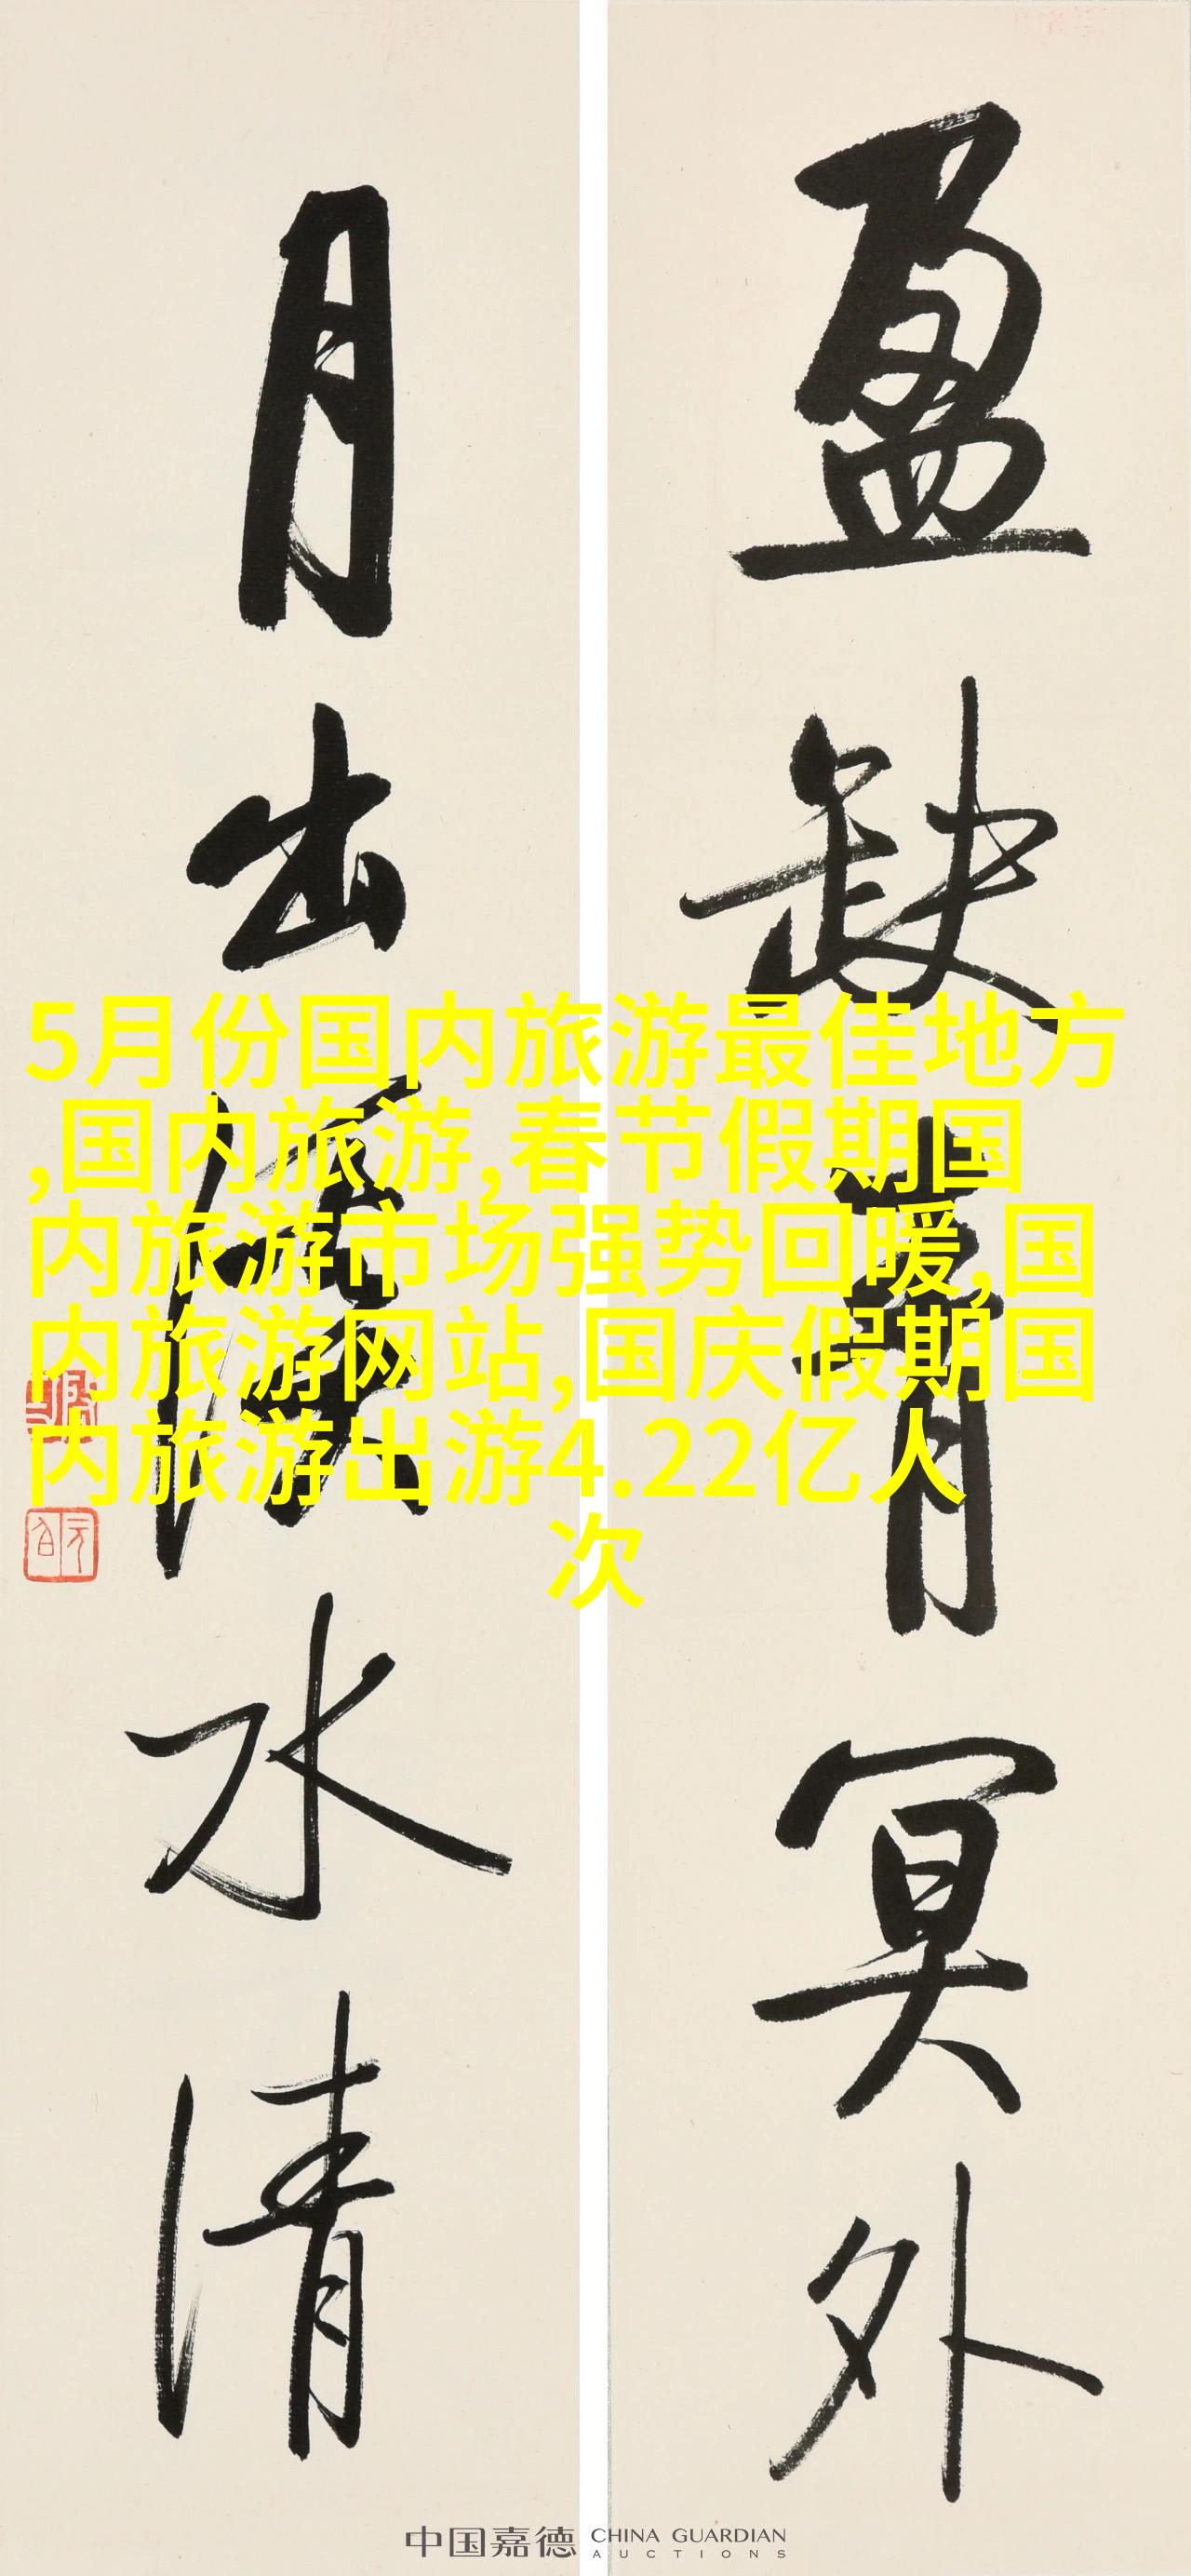 盈缺青冥外
月出水清
5月份国内旅游最佳地方
,国内旅游,春节假期国
内旅游市场强势回暖,国
内旅游网站,国庆假期国
内旅游出游4.22亿人
次
元白
中国嘉德 CHINA GUARDIAN
AUCTIONS